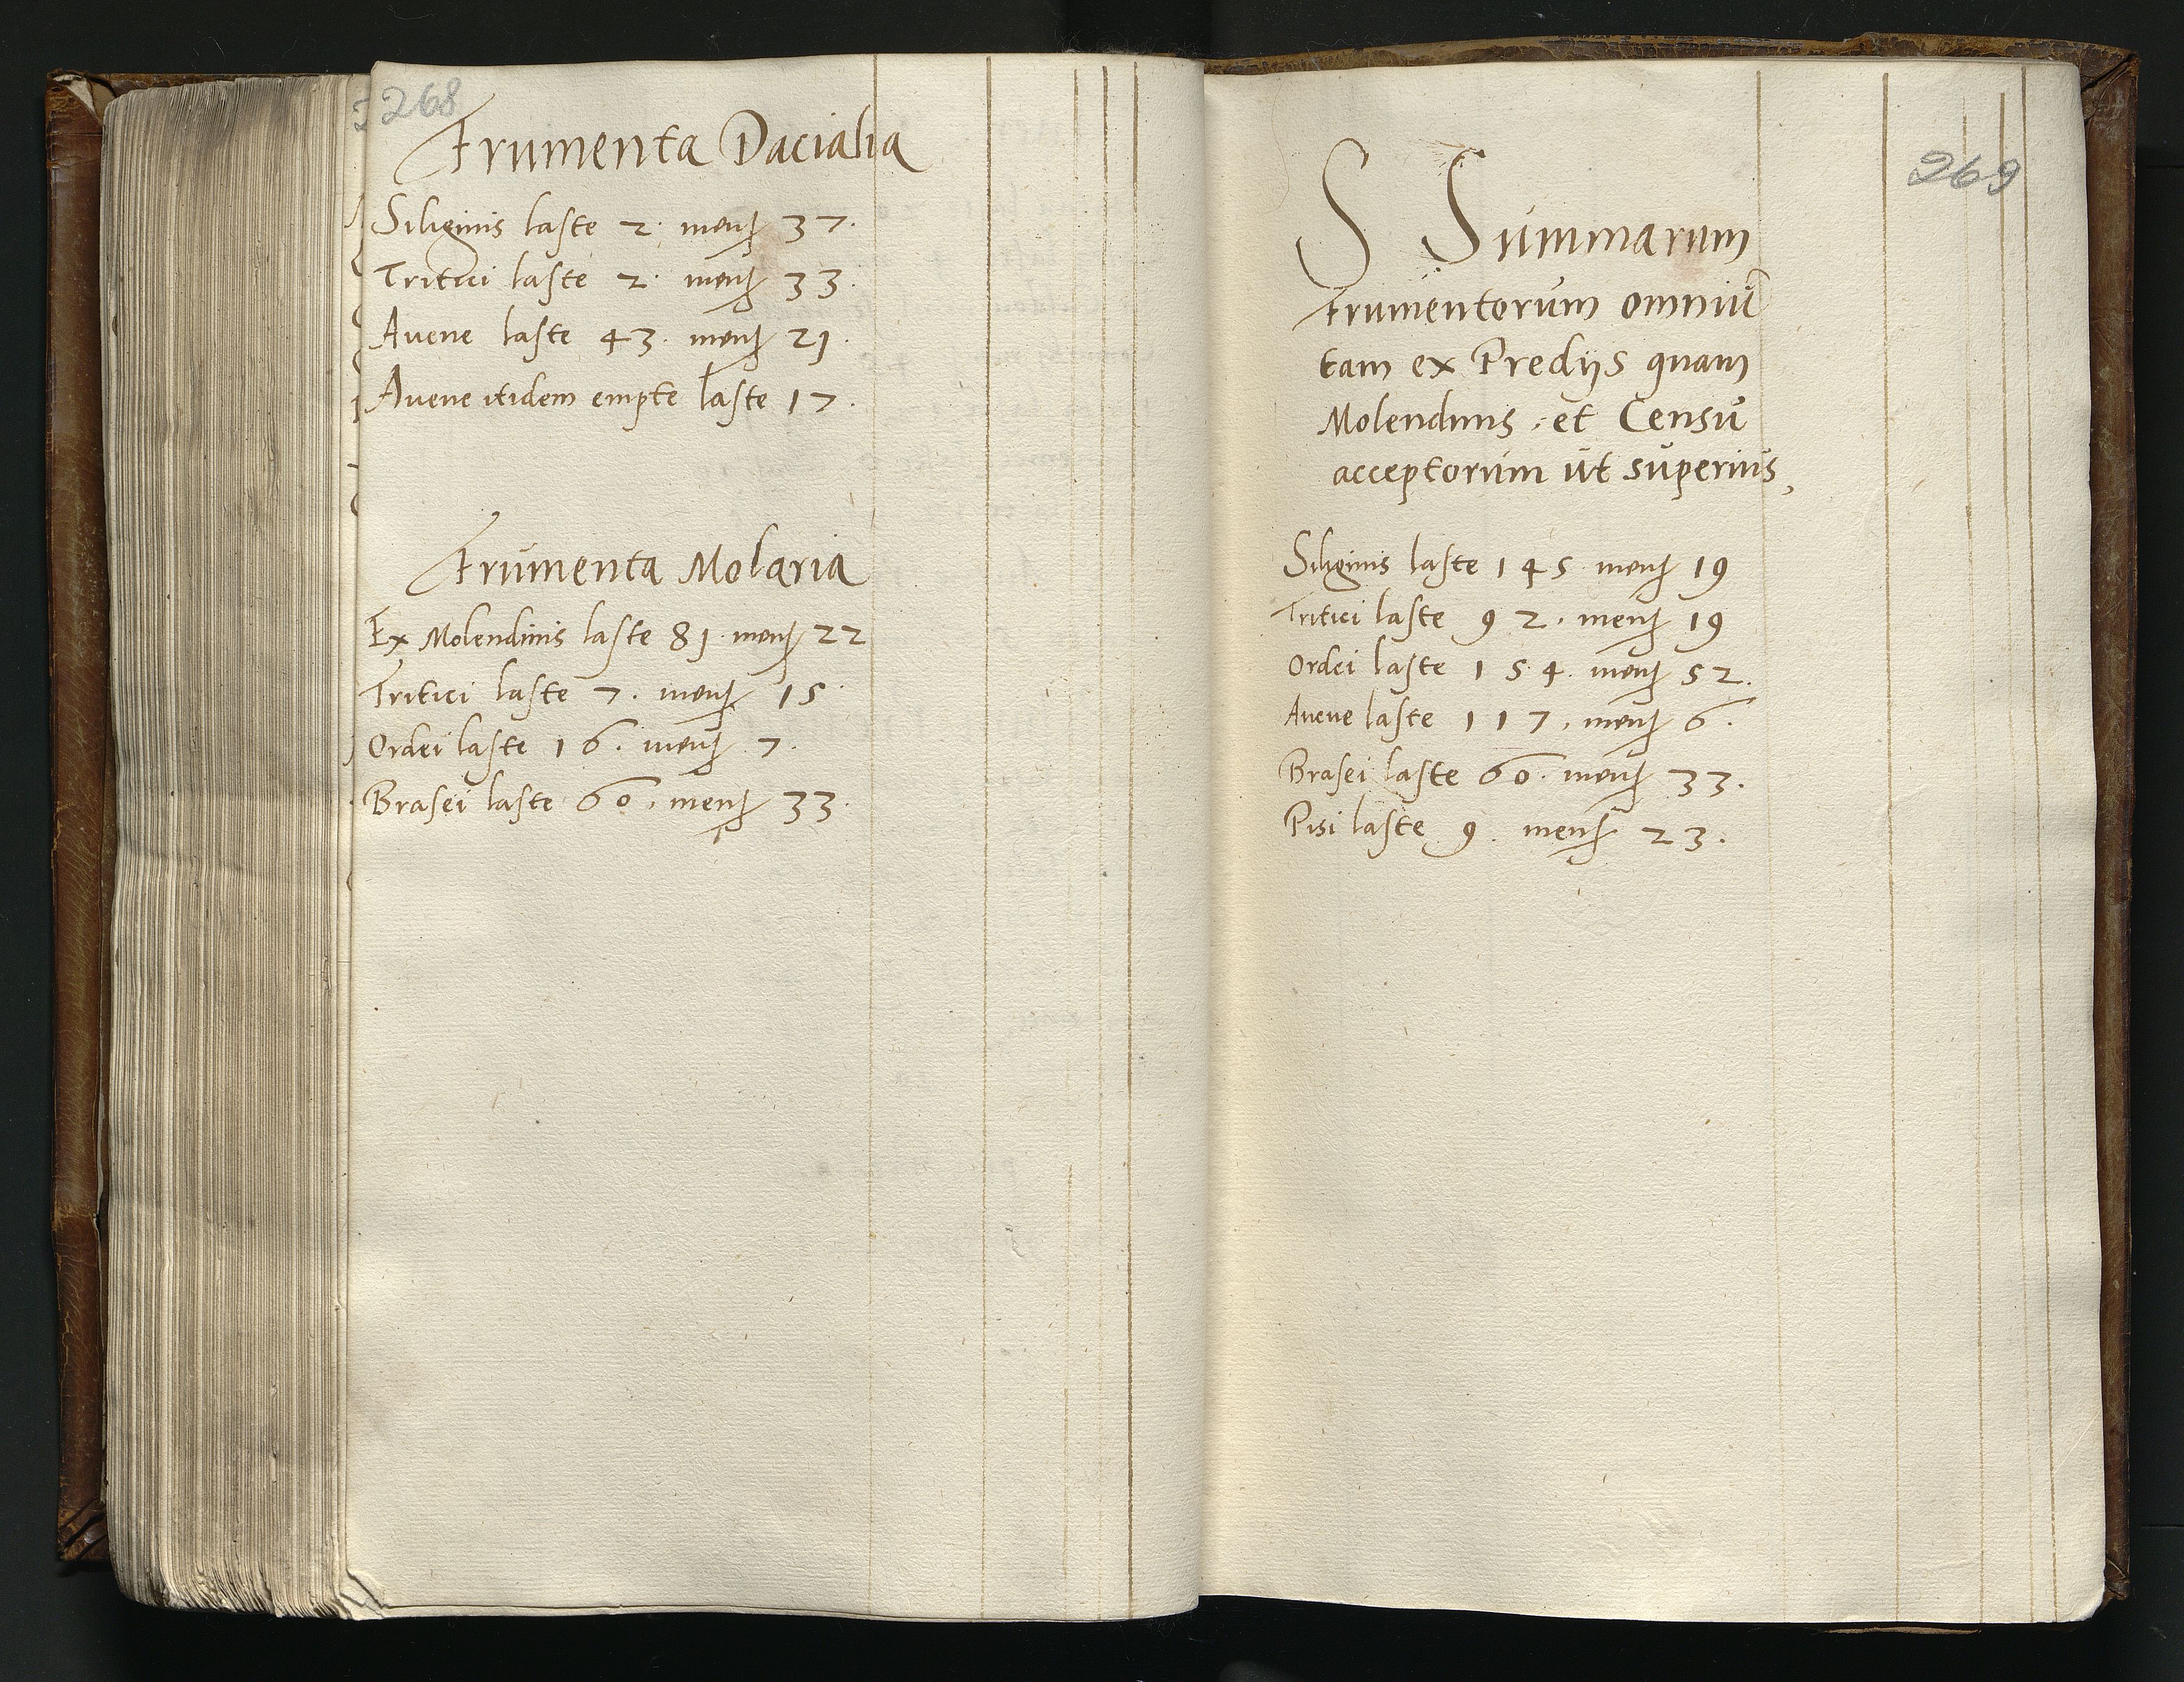 268
Frumenta Dacialia
Siliginis laste 2. menꝫ 37.
Tritici laste 2. menꝫ 33.
Auene laste 43. menꝫ 21.
Auene itidem empte laste 17.
Frumenta Molaria
Ex Molendinis laste 81. menꝫ 22
Tritici laste 7. menꝫ 15.
Ordei laste 16. menꝫ 7.
Brasei laste 60. menꝫ 33.
269
S Summarum
frumentorum omniū
tam ex Predijs quam
Molendinis et Censu
acceptorum ut superius,
Siliginis laste 145. menꝫ 19
Tritici laste 92. menꝫ 19
Ordei laste 154. menꝫ 52.
Auene laste 117. menꝫ 6.
Brasei laste 60. menꝫ 33.
Pisi laste 9. menꝫ 23.